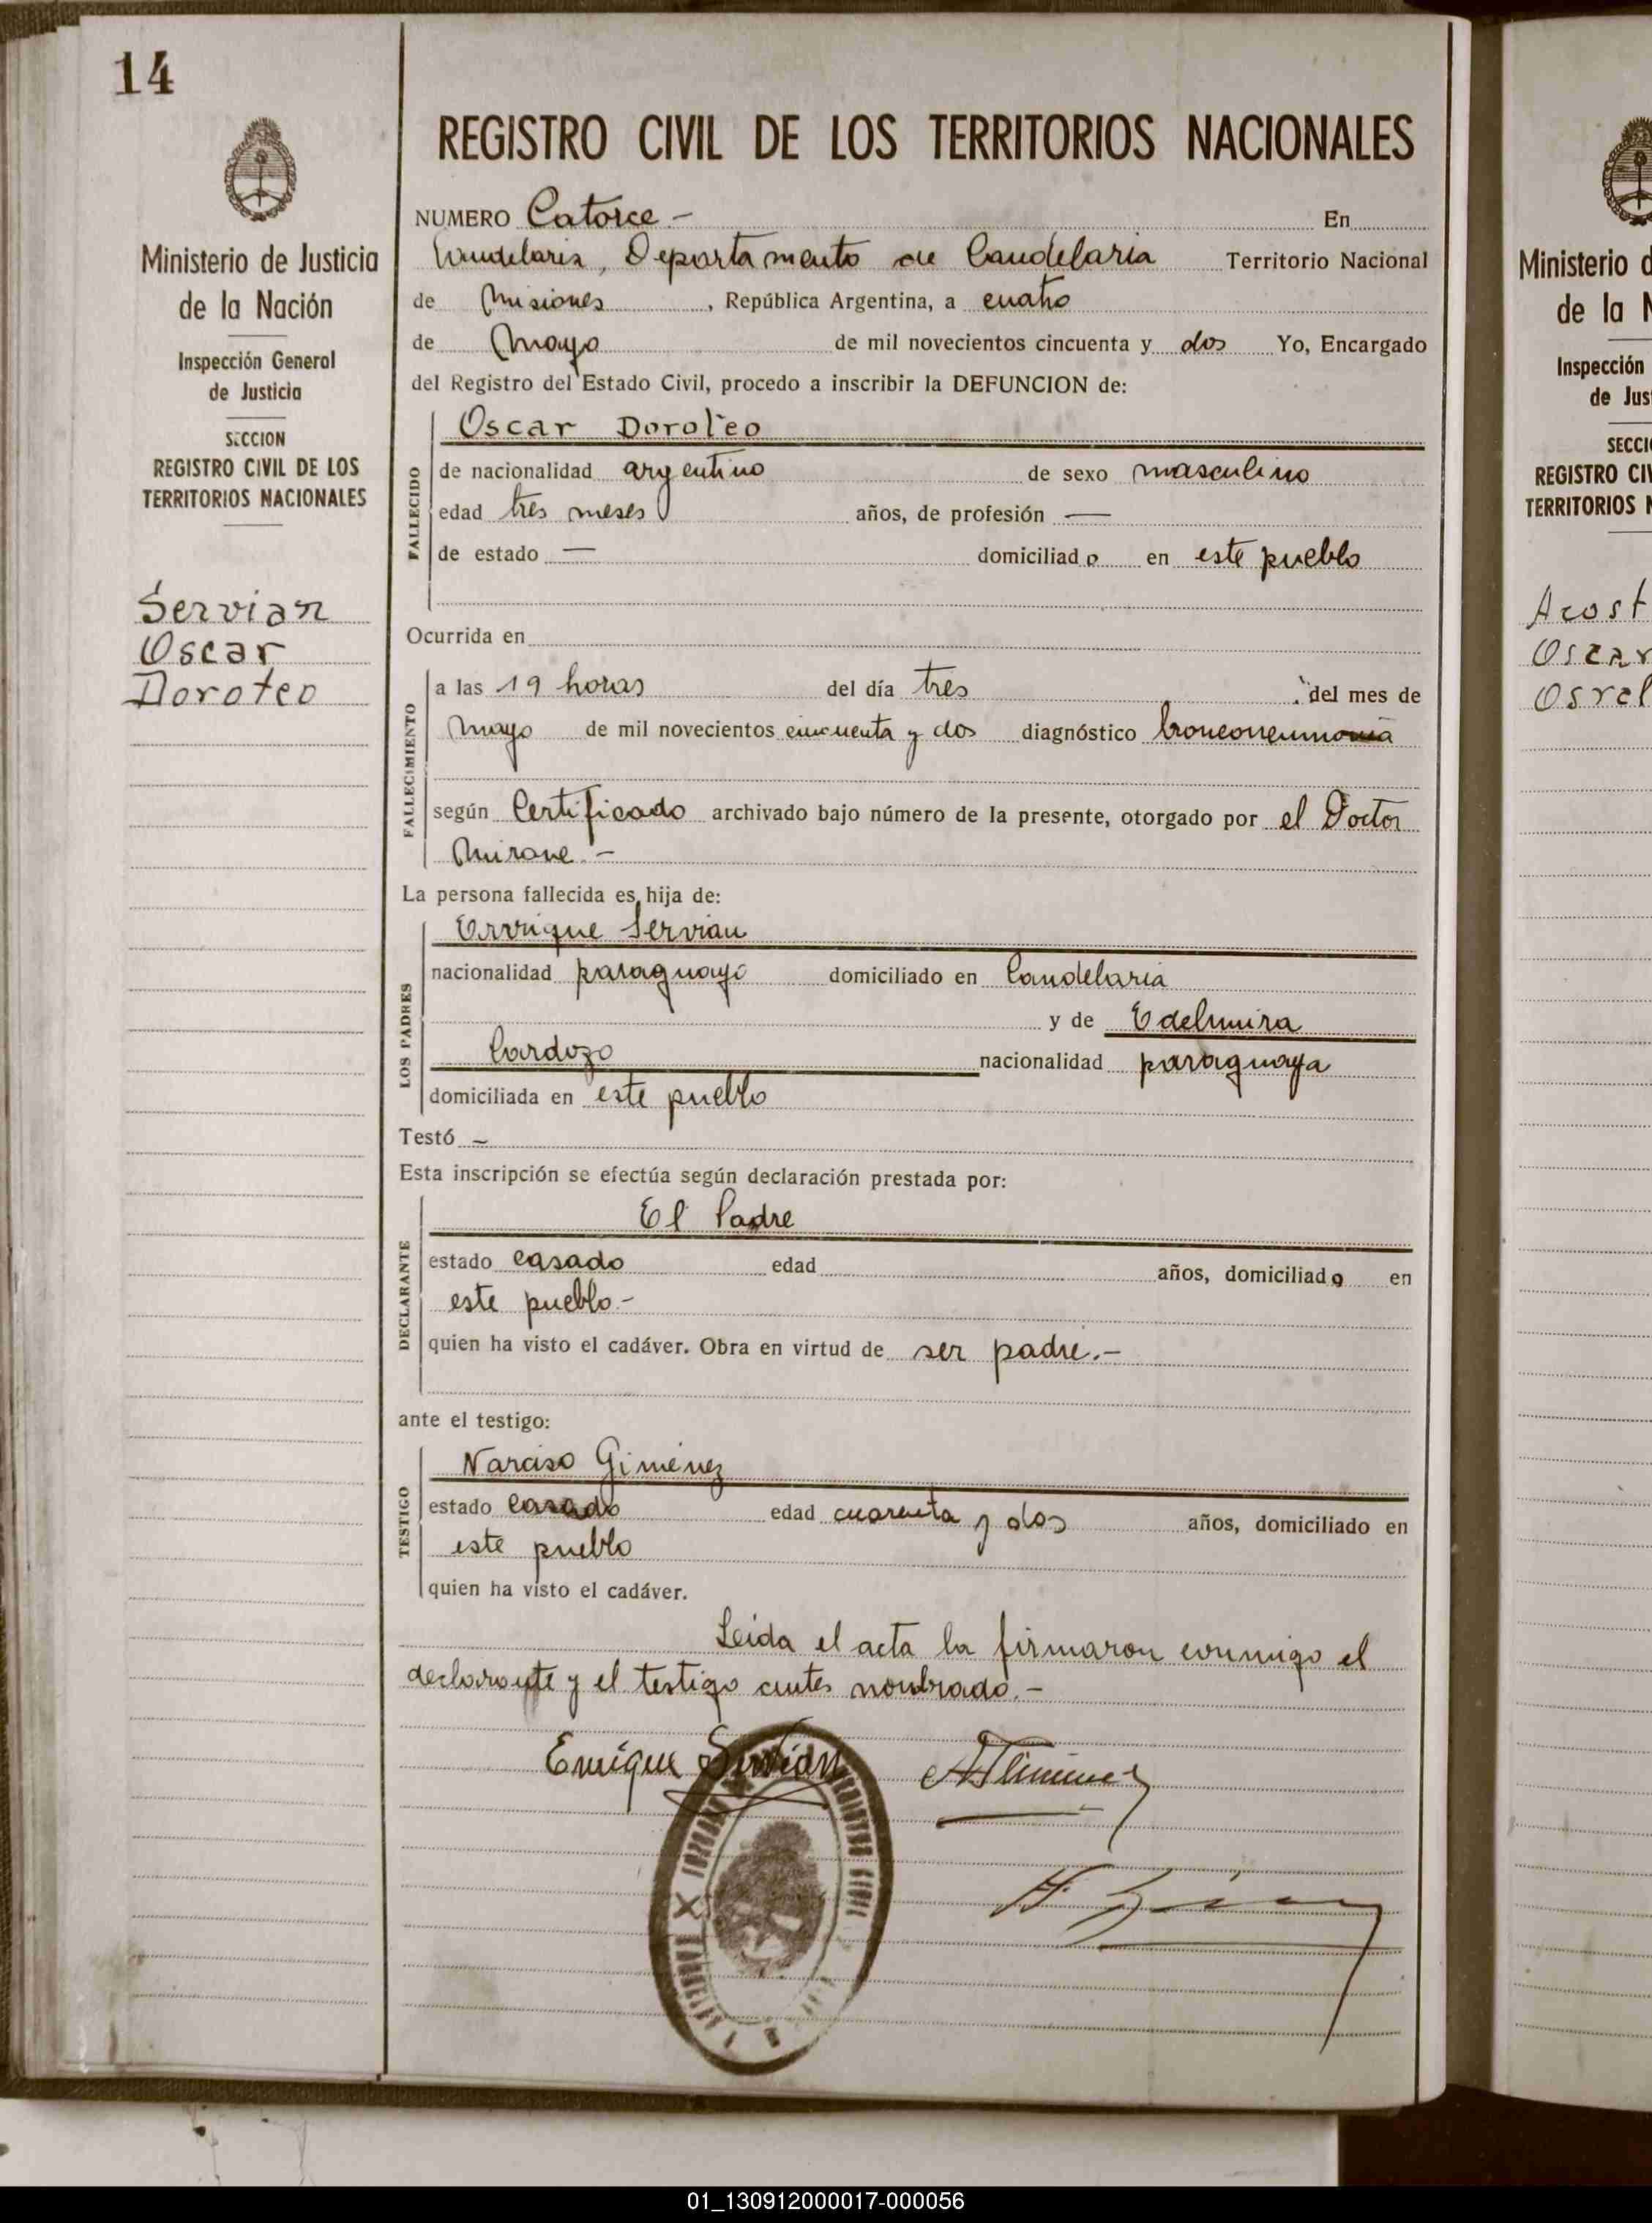 14
Ministerio de Justicia
de la Nación
Inspección General
de Justicia
SECCION
REGISTRO CIVIL DE LOS
TERRITORIOS NACIONALES
Servian
Oscar
Doroteo
REGISTRO CIVIL DE LOS TERRITORIOS NACIONALES
NUMERO Catorce.- En
Candelaria, Departamento de Candelaria Territorio Nacional
de Misiones, República Argentina, a cuatro
de Mayo de mil novecientos cincuenta y dos Yo, Encargado
del Registro del Estado Civil, procedo a inscribir la DEFUNCION de:
FALLECIDO
Oscar Doroteo
de nacionalidad argentino de sexo masculino
edad tres meses años, de profesión —
de estado — domiciliado en este pueblo
Ocurrida en
FALLECIMIENTO
a las 19 horas del día tres del mes de
Mayo de mil novecientos cincuenta y dos diagnóstico bronconeumonia
según Certificado archivado bajo número de la presente, otorgado por el Doctor
Mirone.-
La persona fallecida es hija de:
LOS PADRES
Enrrique Servian
nacionalidad paraguayo domiciliado en Candelaria
y de Edelmira
Cardozo nacionalidad paraguaya
domiciliada en este pueblo
Testó —
Esta inscripción se efectúa según declaración prestada por:
DECLARANTE
El Padre
estado casado edad años, domiciliado en
este pueblo.-
quien ha visto el cadáver. Obra en virtud de ser padre.-
ante el testigo:
TESTIGO
Narciso Gimenez
estado casado edad cuarenta y dos años, domiciliado en
este pueblo
quien ha visto el cadáver.
Leida el acta la firmaron conmigo el
declarante y el testigo antes nombrado.-
Enrique Servian
Ministerio d
de la N
Inspección
de Jus
SECCI
REGISTRO CI
TERRITORIOS N
Acost
Oscar
Osval
01_130912000017-000056